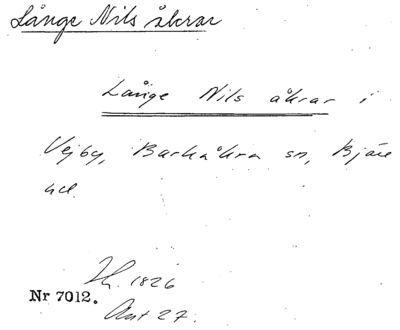 Långe Nils åkrar
Långe Nils åkrar i
Vejby, Barkåkra sn, Bjäre
hd.
1826
Nr 7012.
Akt 27.